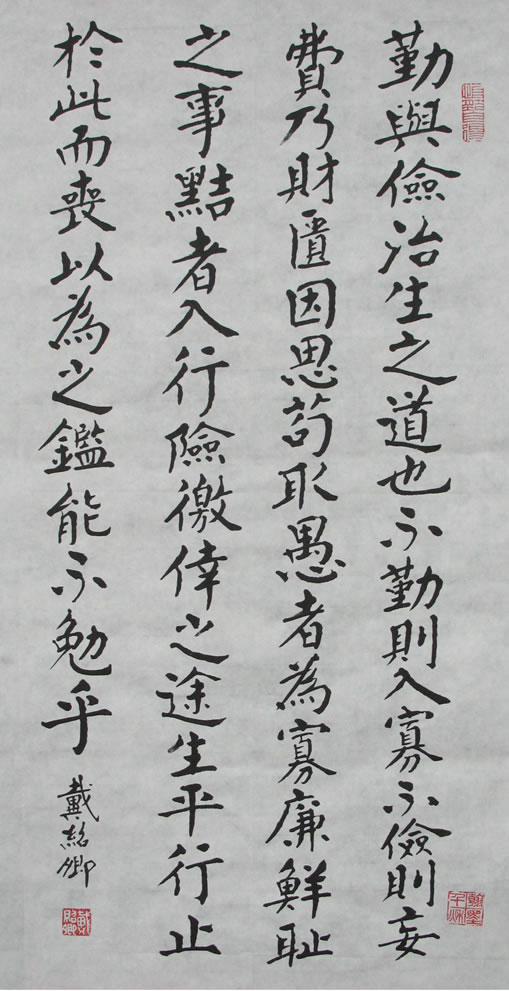 勤與儉治生之道也不勤則入寡不儉則妄
費乃財匱因思苟取愚者為寡廉鮮耻
之事黠者入行險徼倖之途生平行止
於此而喪以為之鑑能不勉乎
戴紹卿